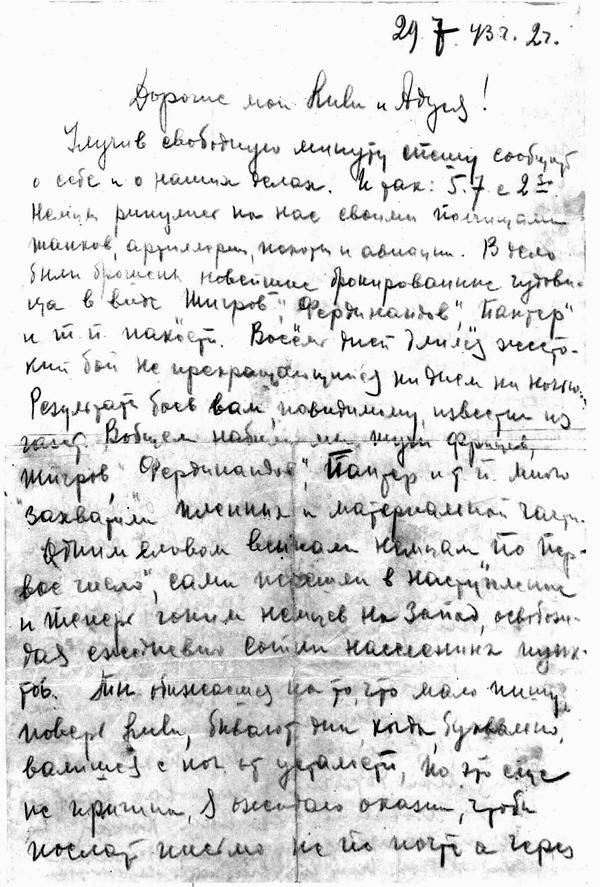 29 7. 43 г. 2 ч.
Дорогие мои Киви и Адуся!
Улучив свободную минуту спешу сообщить
о себе и о наших делах. Итак: 5.7 с 2
Немцы ринулись на нас своими полчищами
танков, артиллерии, пехоты и авиации. В дело
были брошены новейшие бронированные чудови-
ща в виде "Тигров", "Фердинандов", "Пантер"
и т.п. пакости. Восемь дней длился жесто-
кий бой не прекращающийся ни днем ни ночью.
Результаты боев вам, повидимому, известны из
газет. Вобщем набили мы тучи фрицев,
"Тигров", "Фердинандов", "Пантер" и т.п. много
захватили пленных и материальной части.
Одним словом всыпали немцам "По пер-
вое число", сами перешли в наступление
и теперь гоним немцев на Запад, освобож-
дая ежедневно сотни населенных пунк-
тов. Ты обижаешься на то, что мало пишу
поверь Киви, бывают дни, когда, буквально,
валишься с ног от усталости, но это еще
не причина, я ожидаю оказии, чтобы
послать письмо не по почте а через